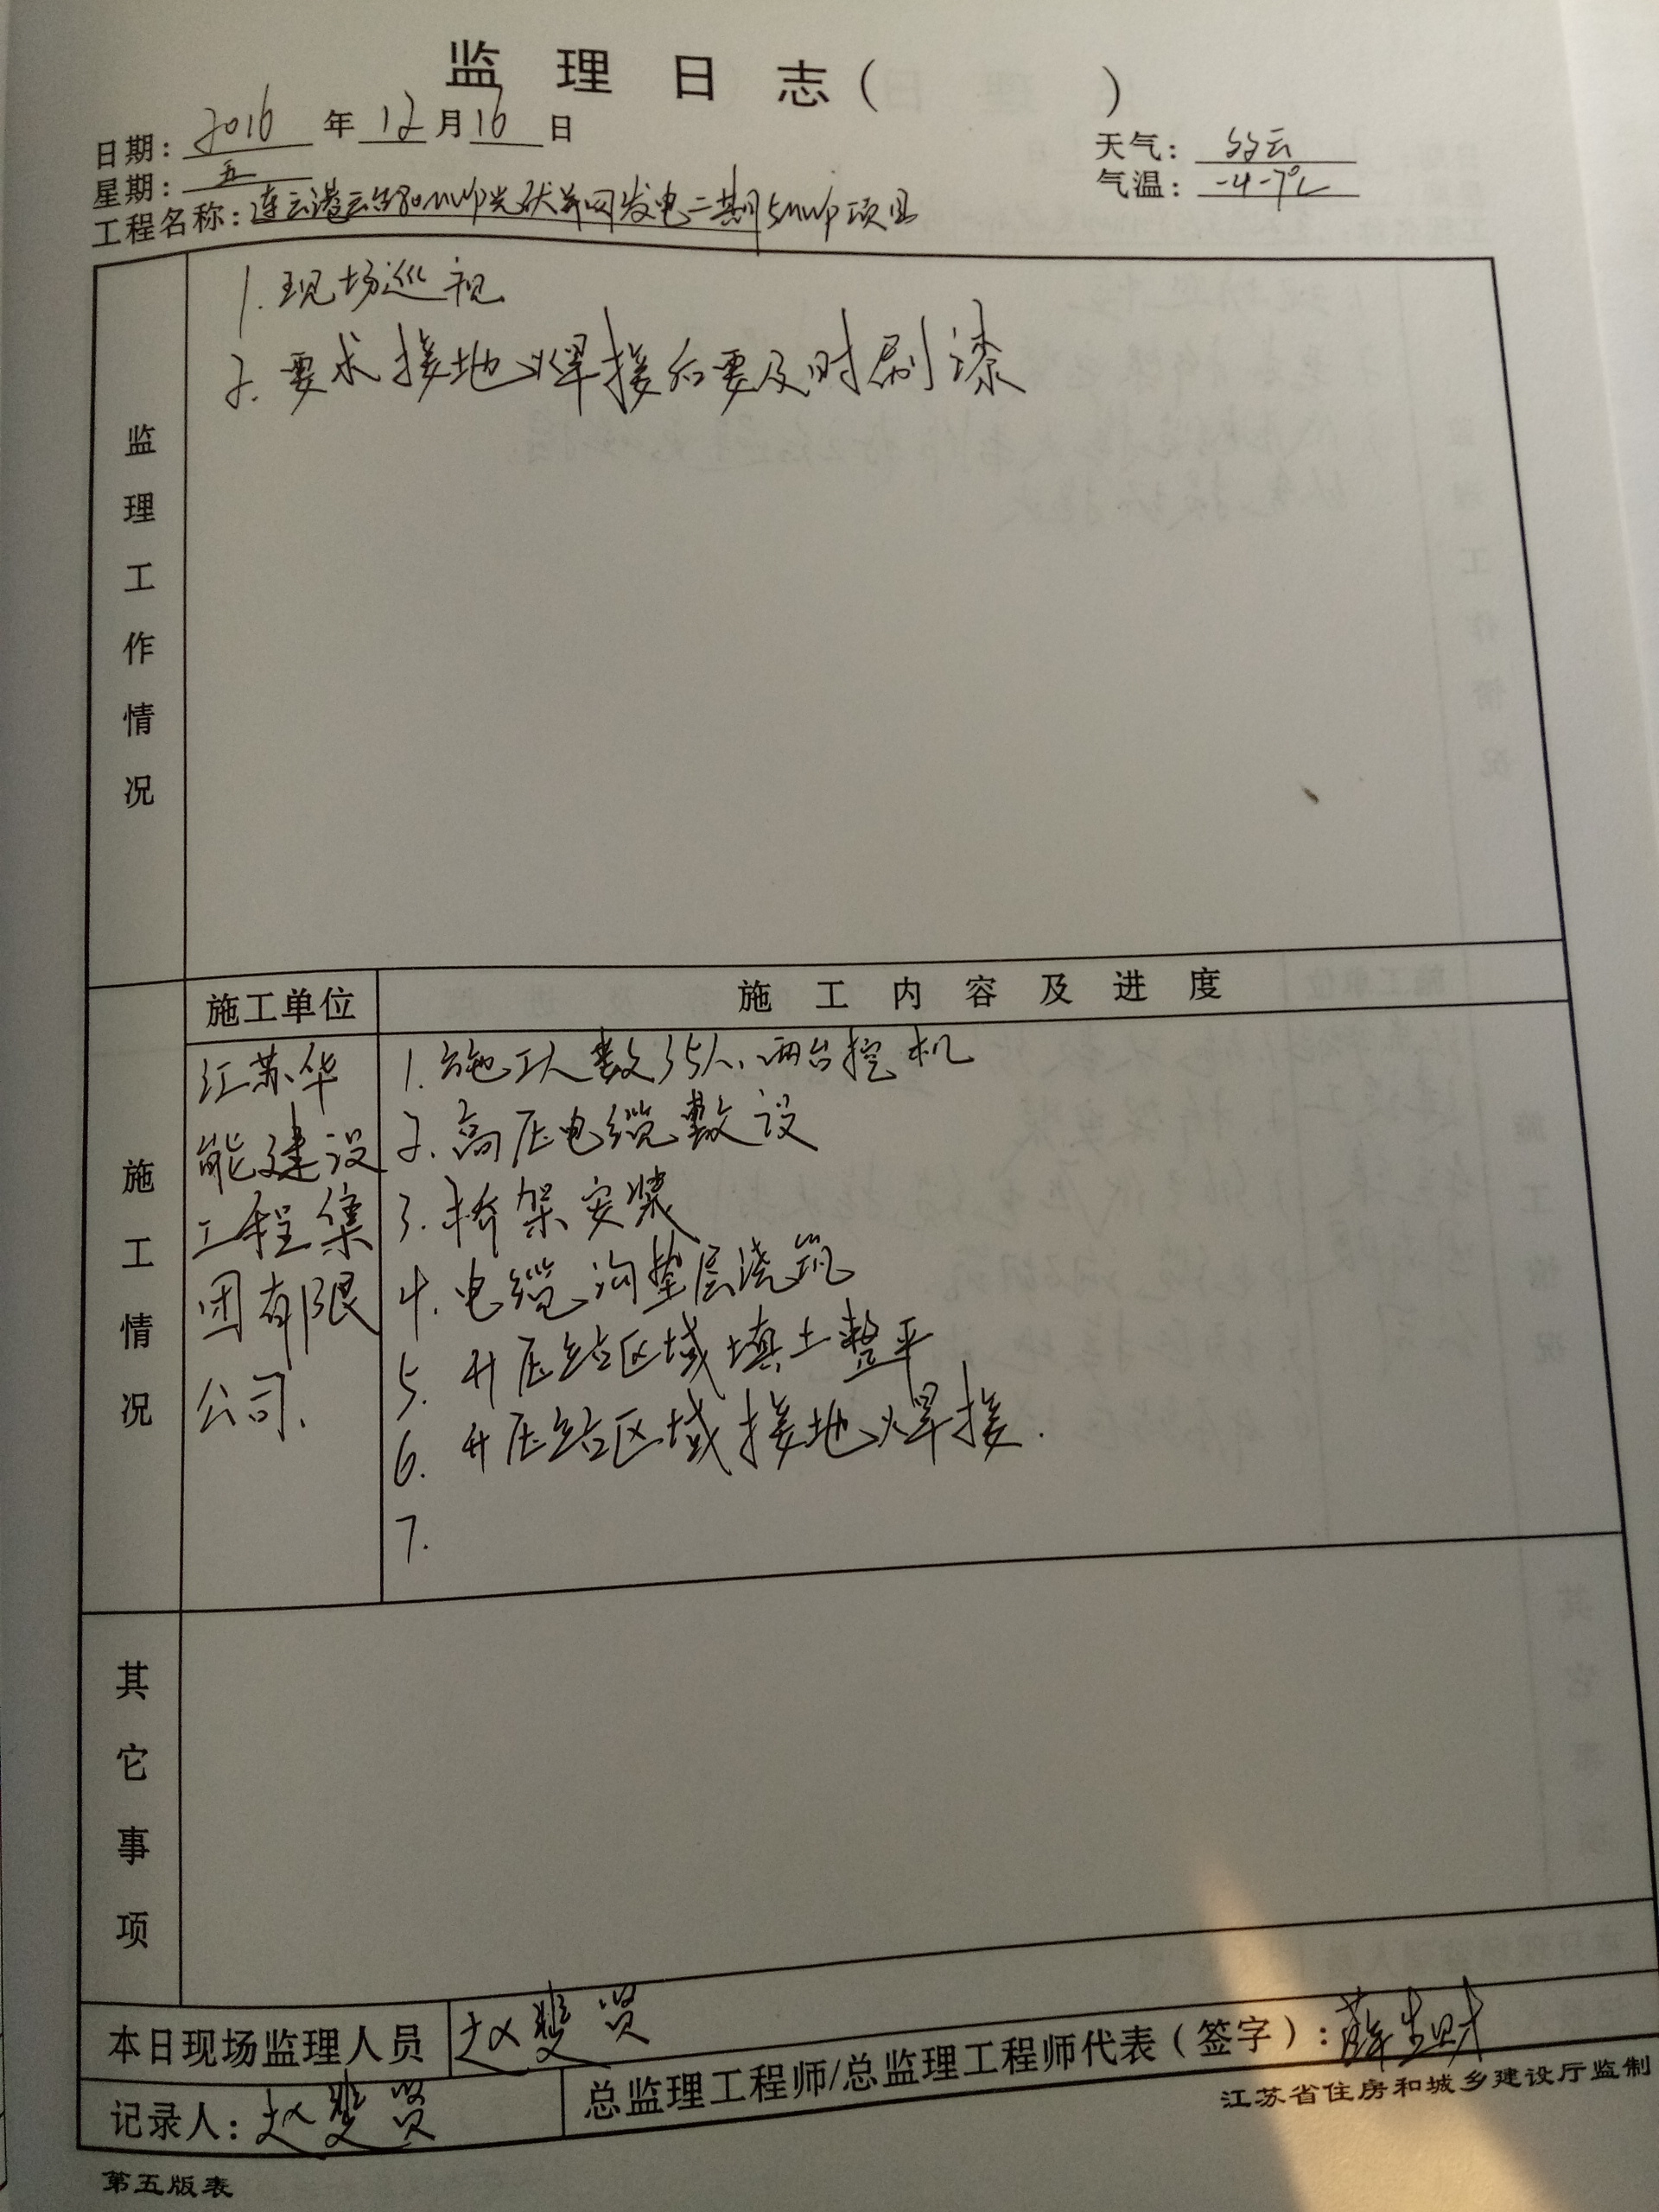 监理日志（ ）
日期：2016年12月16日
天气：多云
星期：五
气温：-4-7℃
工程名称：连云港云台80MWp光伏并网发电二期5MWp项目
监理工作情况
1.现场巡视
2.要求接地焊接后要及时刷漆
施工情况
施工单位
施工内容及进度
江苏华
能建设
工程集
团有限
公司、
1.施工人数35人、两台挖机
2.高压电缆敷设
3.桥架安装
4.电缆沟垫层浇筑
5.升压站区域填土整平
6.升压站区域接地焊接.
7.
其它事项
本日现场监理人员 赵
总监理工程师/总监理工程师代表（签字）：薛
记录人：赵
江苏省住房和城乡建设厅监制
第五版表